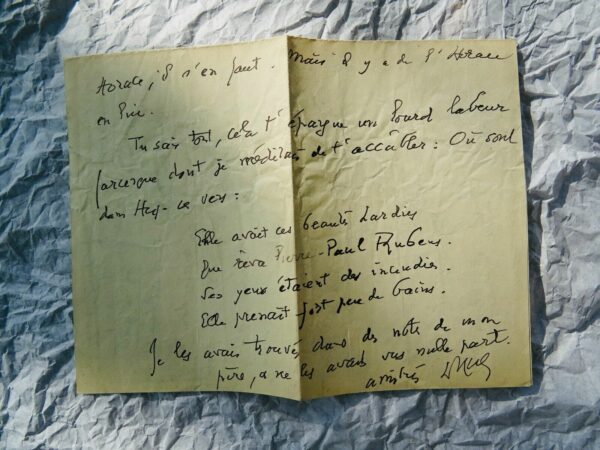 Horace, il s'en faut. Mais il y a de l'Horace
en lui.
Tu sais tout, cela t'épargne un lourd labeur
parce que dont je méditais de t'accabler : Où sont
dans Hugo ce vers :
Elle avait ces beautés hardies
Que rêva Pierre-Paul Rubens.
Ses yeux étaient des incendies.
Elle prenait fort peu de bains.
Je les avais trouvés dans des notes de mon
père, a ne les avais vus nulle part.
amitiés